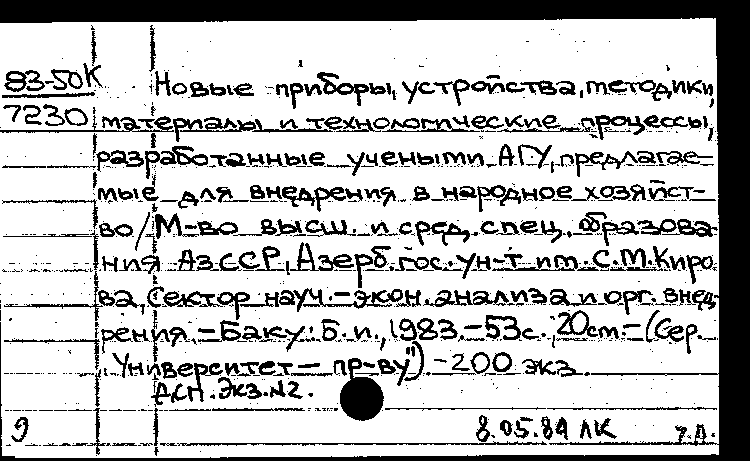 83-50К Новые приборы, устройства, методики,
7230 материалы и технологические процессы,
разработанные учеными АГУ, предлагае-
мые для внедрения в народное хозяйст-
во / М-во высш. и сред. спец. образова-
ния АзССР, Азерб. гос. ун-т им. С.М. Киро
ва, Сектор науч.-экон. анализа и орг. внед-
рения. - Баку: Б. и., 1983. - 53с.; 20см. - (Сер.
"Университет - пр-ву"). - 200 экз.
ДСП. Экз. №2.
9 8.05.84 ЛК